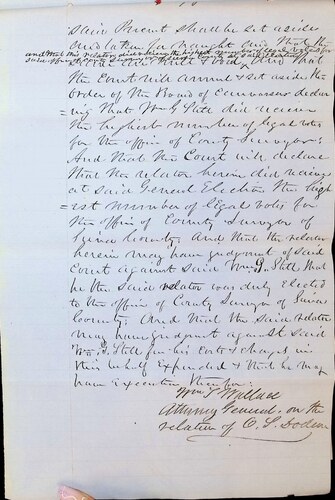 said Precent should be set aside
and taken for naught and that the
and that this relator did receive the highest number of legal votes for
said office of County Surveyor
and void, and that
the Court will annul & set aside the
order of the Board of Canvassers declar
=ing that Wm G Still did receive
the highest number of legal votes
for the office of County Surveyor:
And that the Court will declare
that the relator herein did receive
at said General Election the high
=est number of legal votes for
the office of County Surveyor of
County And that the relator
herein may have judgment of said
Court against said Wm G. Still that
he the said relator was duly elected
to the office of County Surveyor of
County: And that the said relator
may have judgment against said
Wm G. Still for his costs & charges in
this behalf expended & that he may
have execution therefor:
Wm T Wallace
Attorney General on the
relation of C. S. Dodson